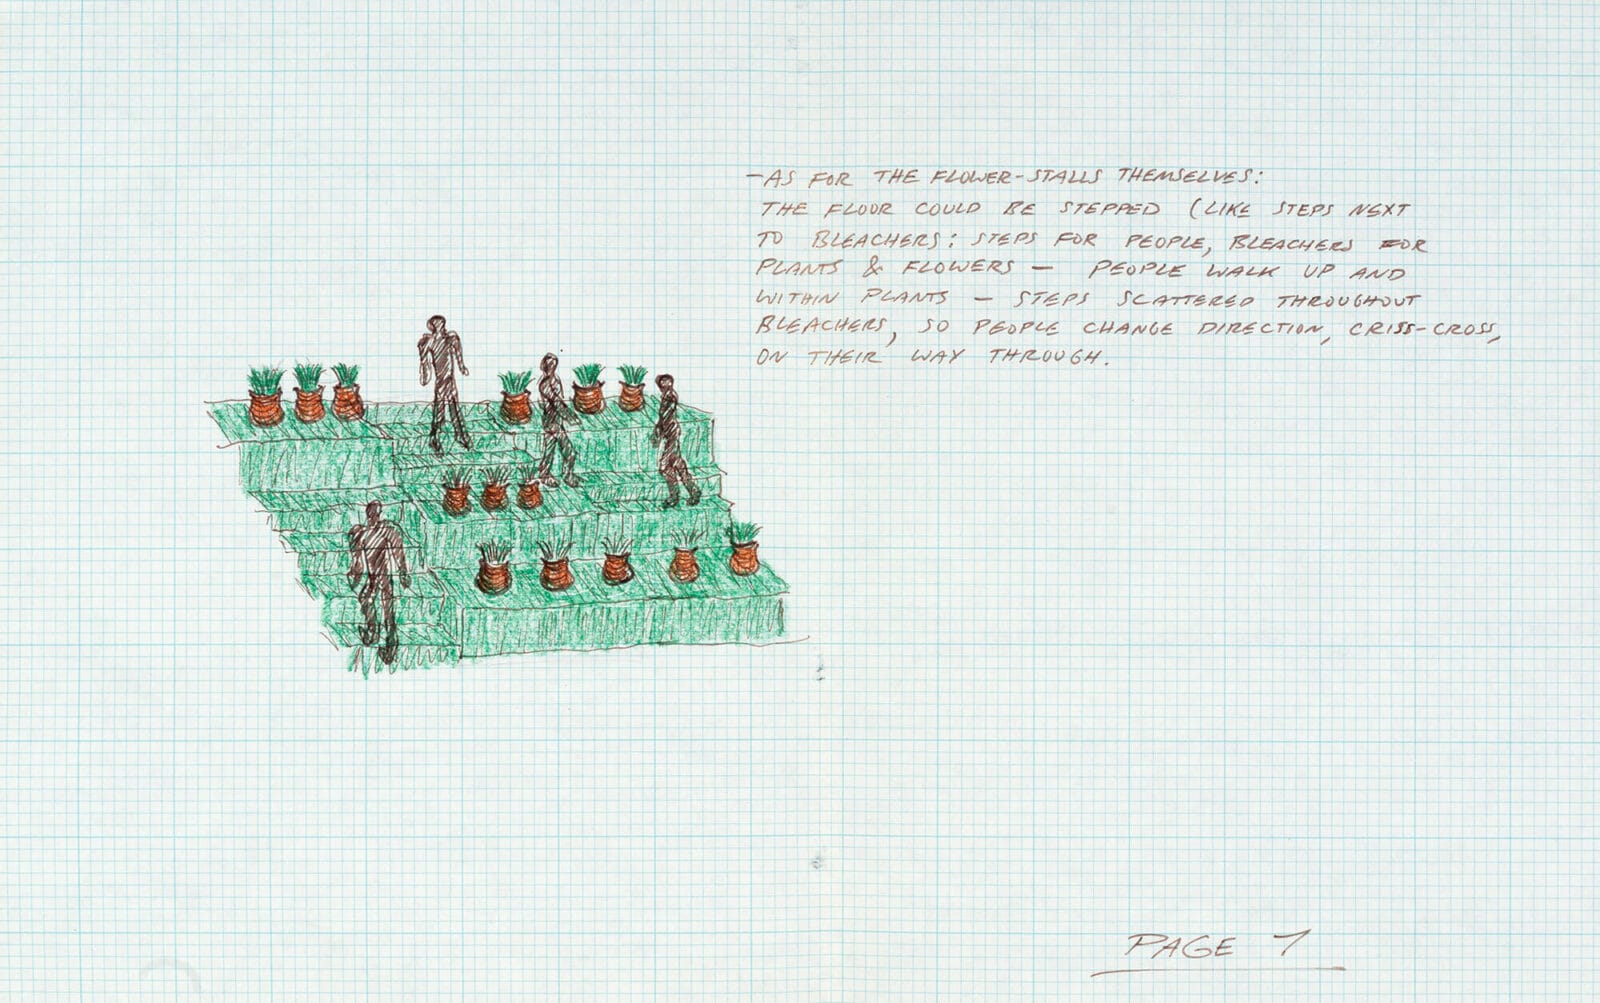 —AS FOR THE FLOWER-STALLS THEMSELVES:
THE FLOOR COULD BE STEPPED (LIKE STEPS NEXT
TO BLEACHERS: STEPS FOR PEOPLE, BLEACHERS FOR
PLANTS & FLOWERS — PEOPLE WALK UP AND
WITHIN PLANTS — STEPS SCATTERED THROUGHOUT
BLEACHERS, SO PEOPLE CHANGE DIRECTION, CRISS-CROSS,
ON THEIR WAY THROUGH.
PAGE 7